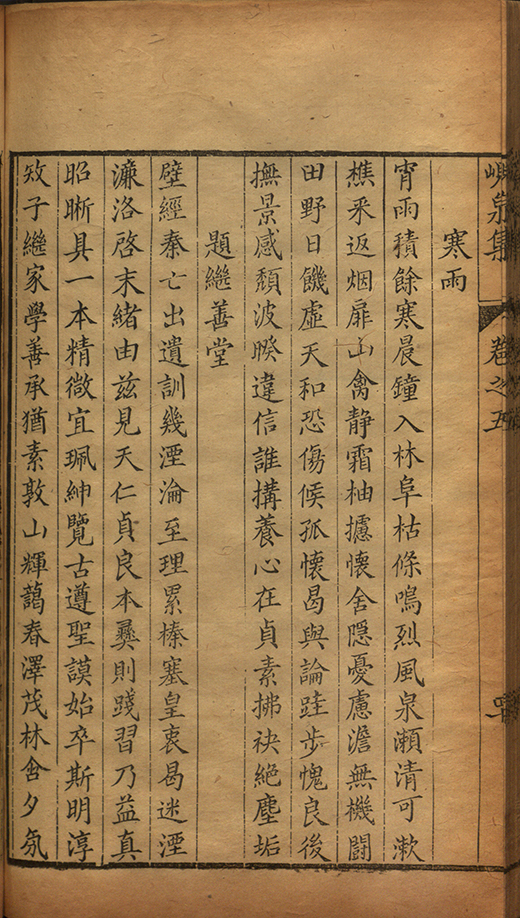 峴泉集 卷之五
寒雨
宵雨積餘寒晨鐘入林阜枯條鳴烈風泉瀨清可漱
樵釆返烟扉山禽静霜柚攄懷舍隠憂慮澹無機鬪
田野日饑虛天和恐傷候孤懷曷與論跬步愧良後
撫景感頽波暌違信誰搆養心在貞素拂袂絶塵垢
題繼善堂
壁經秦亡出遺訓幾湮淪至理累榛塞皇衷曷迷湮
濂洛啓末緒由兹見天仁貞良本彞則踐習乃益真
昭晰具一本精微宜珮紳覽古遵聖謨始卒斯明淳
欬子繼家學善承猶素敦山輝藹春澤茂林舍夕氛